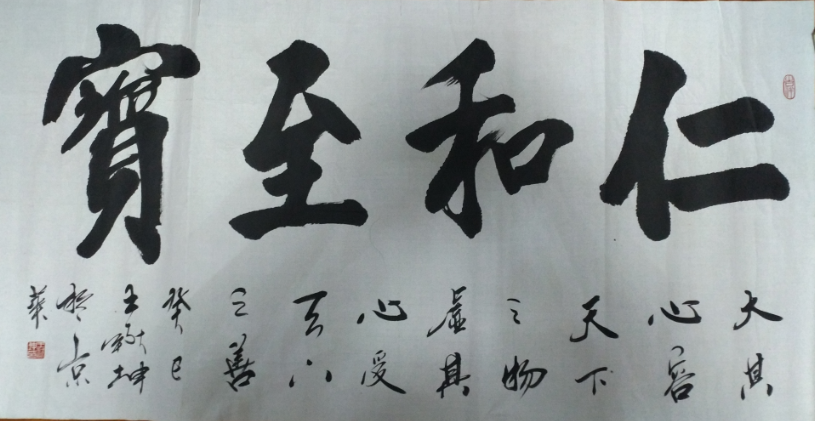 仁和至寶
大其
心容
天下
之物
虛其
心受
天下
之善
癸巳
王坤
於京
華